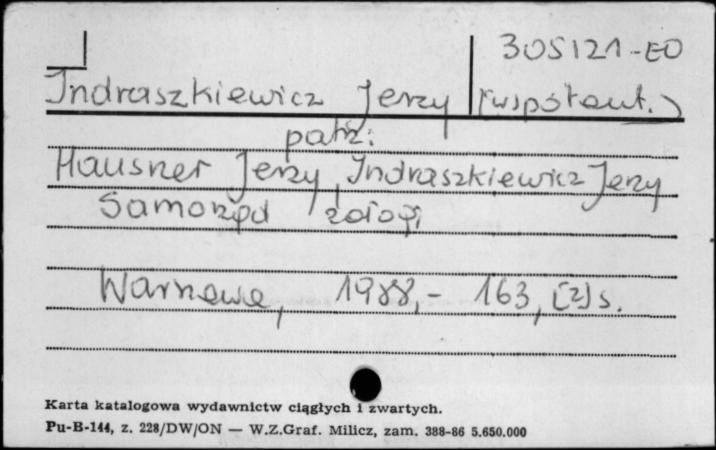 305121-EO
Indraszkiewicz Jerzy (współaut.)
patrz:
Hausner Jerzy, Indraszkiewicz Jerzy
Samorząd załogi
Warszawa, 1988,- 163, [2] s.
Karta katalogowa wydawnictw ciągłych i zwartych.
Pu-B-144, z. 228/DW/ON — W.Z.Graf. Milicz, zam. 388-86 5.650.000